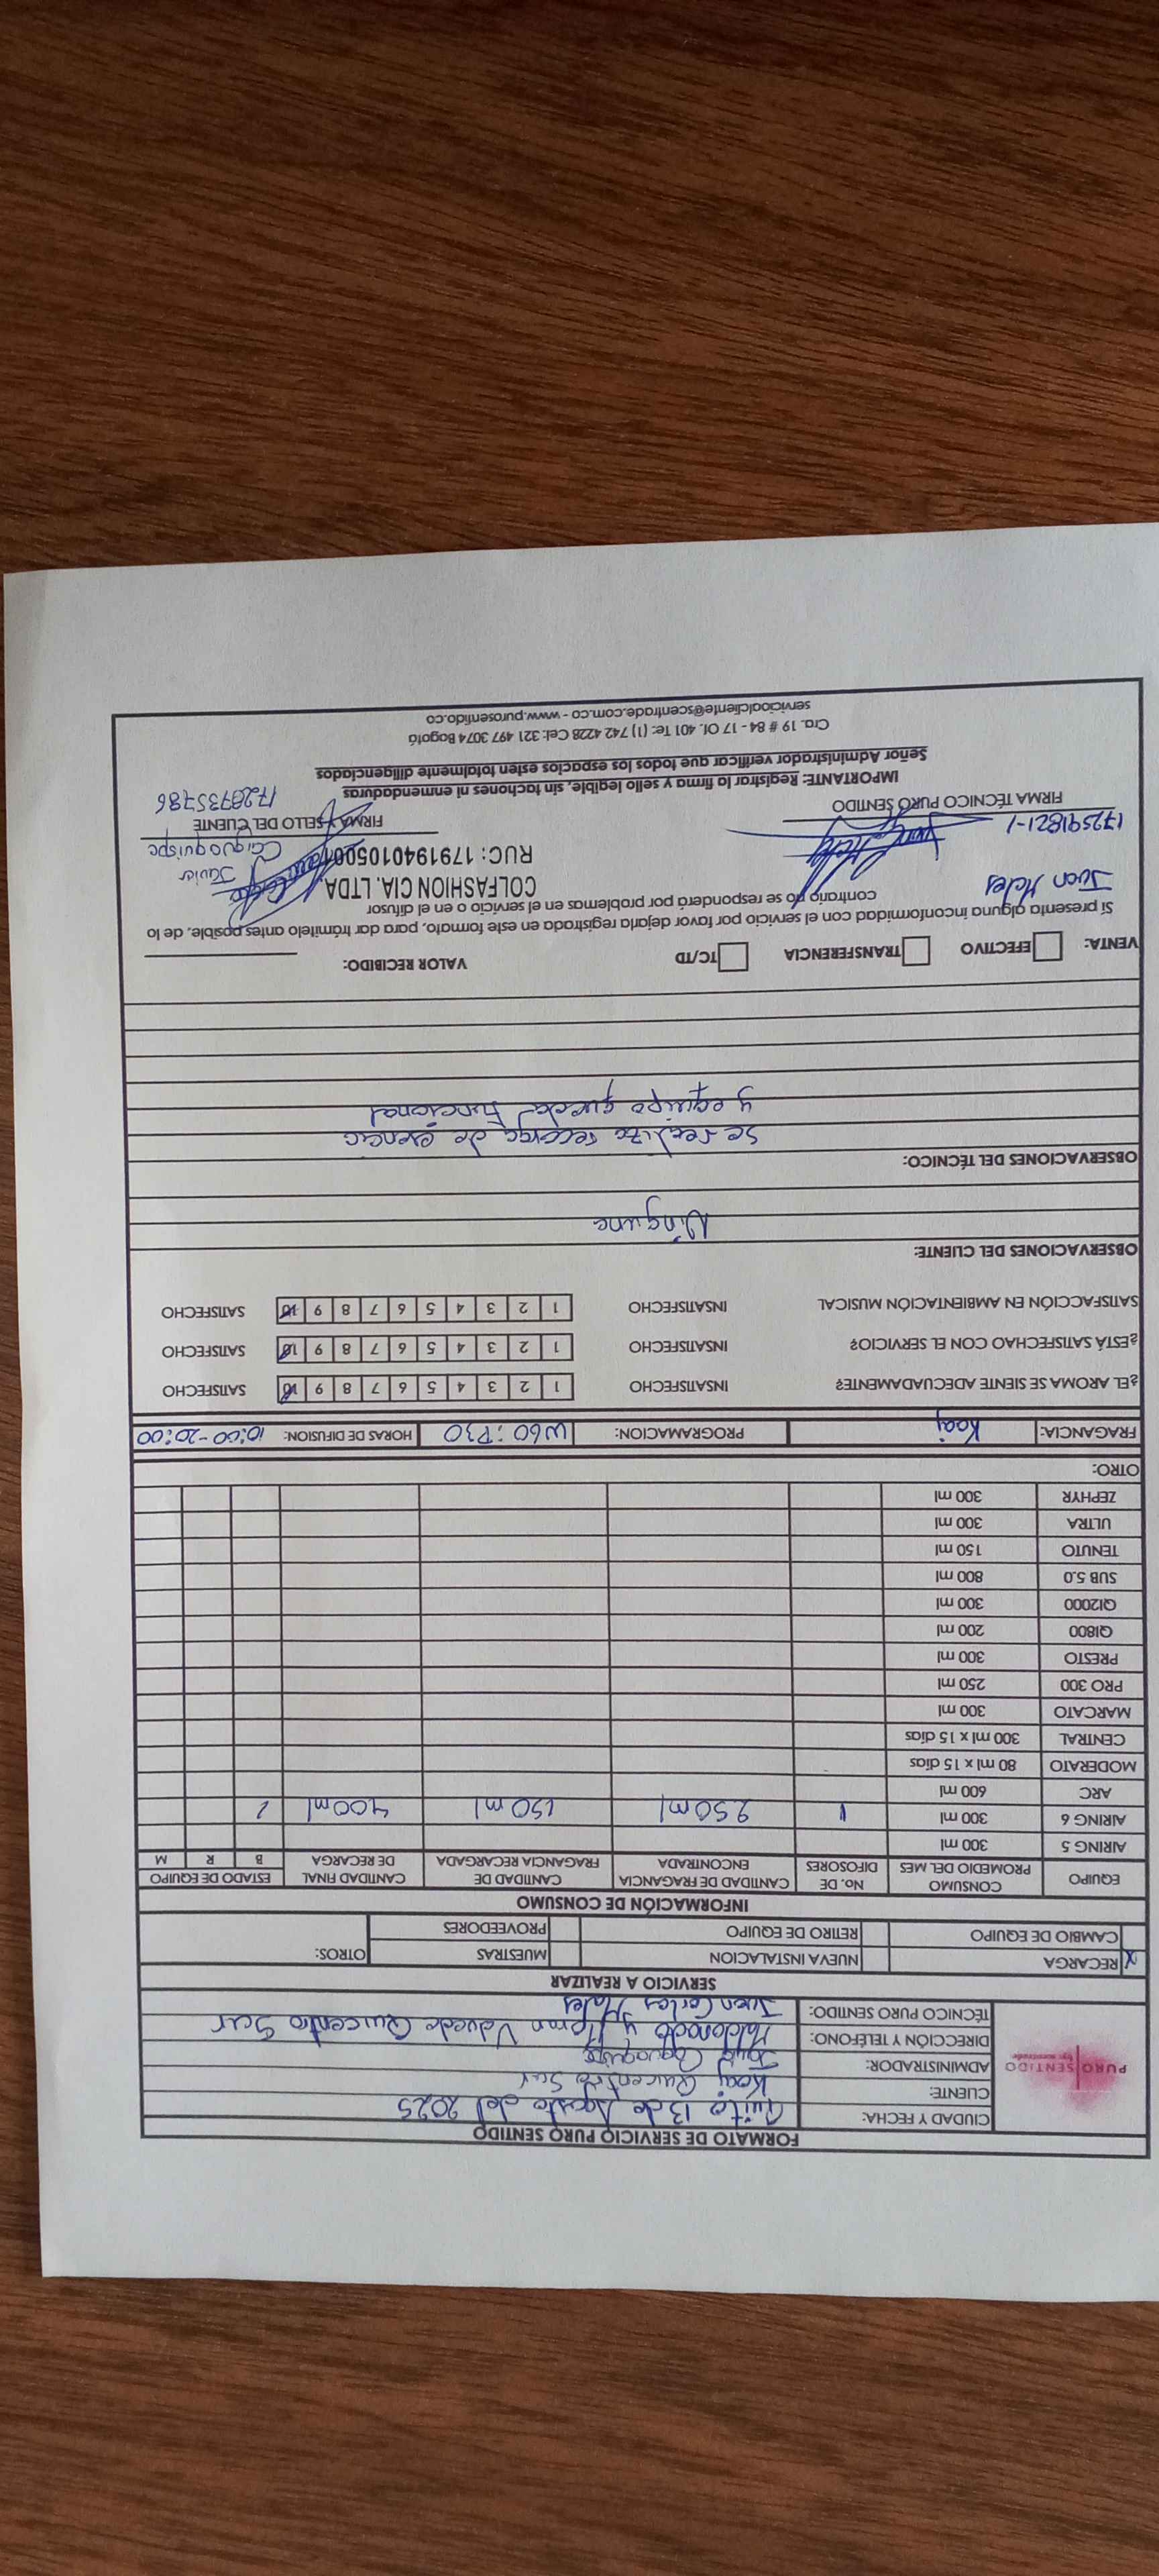 FORMATO DE SERVICIO PURO SENTIDO
PURO SENTIDO
CIUDAD Y FECHA: Quito 13 de Agosto del 2025
CLIENTE: Koaj Quicentro Sur
ADMINISTRADOR:
DIRECCIÓN Y TELÉFONO: Maldonado y Moran Quicentro Sur
TÉCNICO PURO SENTIDO: Juan Carlos Males
SERVICIO A REALIZAR
X RECARGA NUEVA INSTALACION MUESTRAS OTROS:
CAMBIO DE EQUIPO RETIRO DE EQUIPO PROVEEDORES
INFORMACIÓN DE CONSUMO
EQUIPO CONSUMO PROMEDIO DEL MES No. DE DIFOSORES CANTIDAD DE FRAGANCIA ENCONTRADA CANTIDAD DE FRAGANCIA RECARGADA CANTIDAD FINAL DE RECARGA ESTADO DE EQUIPO B R M
AIRING 5 300 ml
AIRING 6 300 ml 1 250ml 150ml 400ml 1
ARC 600 ml
MODERATO 80 ml x 15 días
CENTRAL 300 ml x 15 días
MARCATO 300 ml
PRO 300 250 ml
PRESTO 300 ml
QI800 200 ml
QI2000 300 ml
SUB 5.0 800 ml
TENUTO 150 ml
ULTRA 300 ml
ZEPHYR 300 ml
OTRO:
FRAGANCIA: Koaj PROGRAMACION: W60:P30 HORAS DE DIFUSION: 10:00-20:00
¿EL AROMA SE SIENTE ADECUADAMENTE? INSATISFECHO 1 2 3 4 5 6 7 8 9 10 SATISFECHO
¿ESTÁ SATISFECHAO CON EL SERVICIO? INSATISFECHO 1 2 3 4 5 6 7 8 9 10 SATISFECHO
SATISFACCIÓN EN AMBIENTACIÓN MUSICAL INSATISFECHO 1 2 3 4 5 6 7 8 9 10 SATISFECHO
OBSERVACIONES DEL CLIENTE:
Ninguna
OBSERVACIONES DEL TÉCNICO:
se realiza recarga de esencia
y equipo queda funcional
VENTA: EFECTIVO TRANSFERENCIA TC/TD VALOR RECIBIDO:
Si presenta alguna inconformidad con el servicio por favor dejarla registrada en este formato, para dar trámitelo antes posible, de lo
contrario no se responderá por problemas en el servicio o en el difusor
Juan Males
COLFASHION CIA. LTDA.
Javier
RUC: 1791940105001
Caiguaquispe
172591821-1
FIRMA TÉCNICO PURO SENTIDO
FIRMA Y SELLO DEL CLIENTE
1728735786
IMPORTANTE: Registrar la firma y sello legible, sin tachones ni enmendaduras
Señor Administrador verificar que todos los espacios esten totalmente diligenciados
Cra. 19 # 84 - 17 Of. 401 Te: (1) 742 4228 Cel: 321 497 3074 Bogotá
servicioalcliente@scentrade.com.co - www.purosentido.co